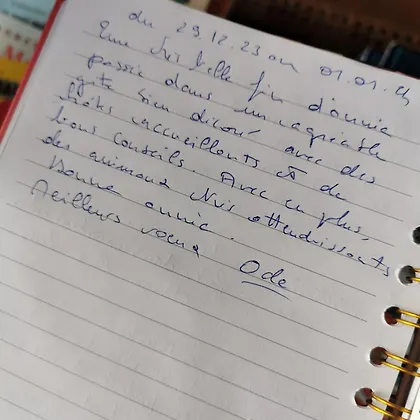 du 29.12.23 au 01.01.24
Une très belle fin d'année
passée dans un agréable
gîte bien décoré avec des
hôtes accueillants et de
bons conseils. Avec en plus,
des animaux très attendrissants
Bonne année.
Meilleurs voeux
Ode